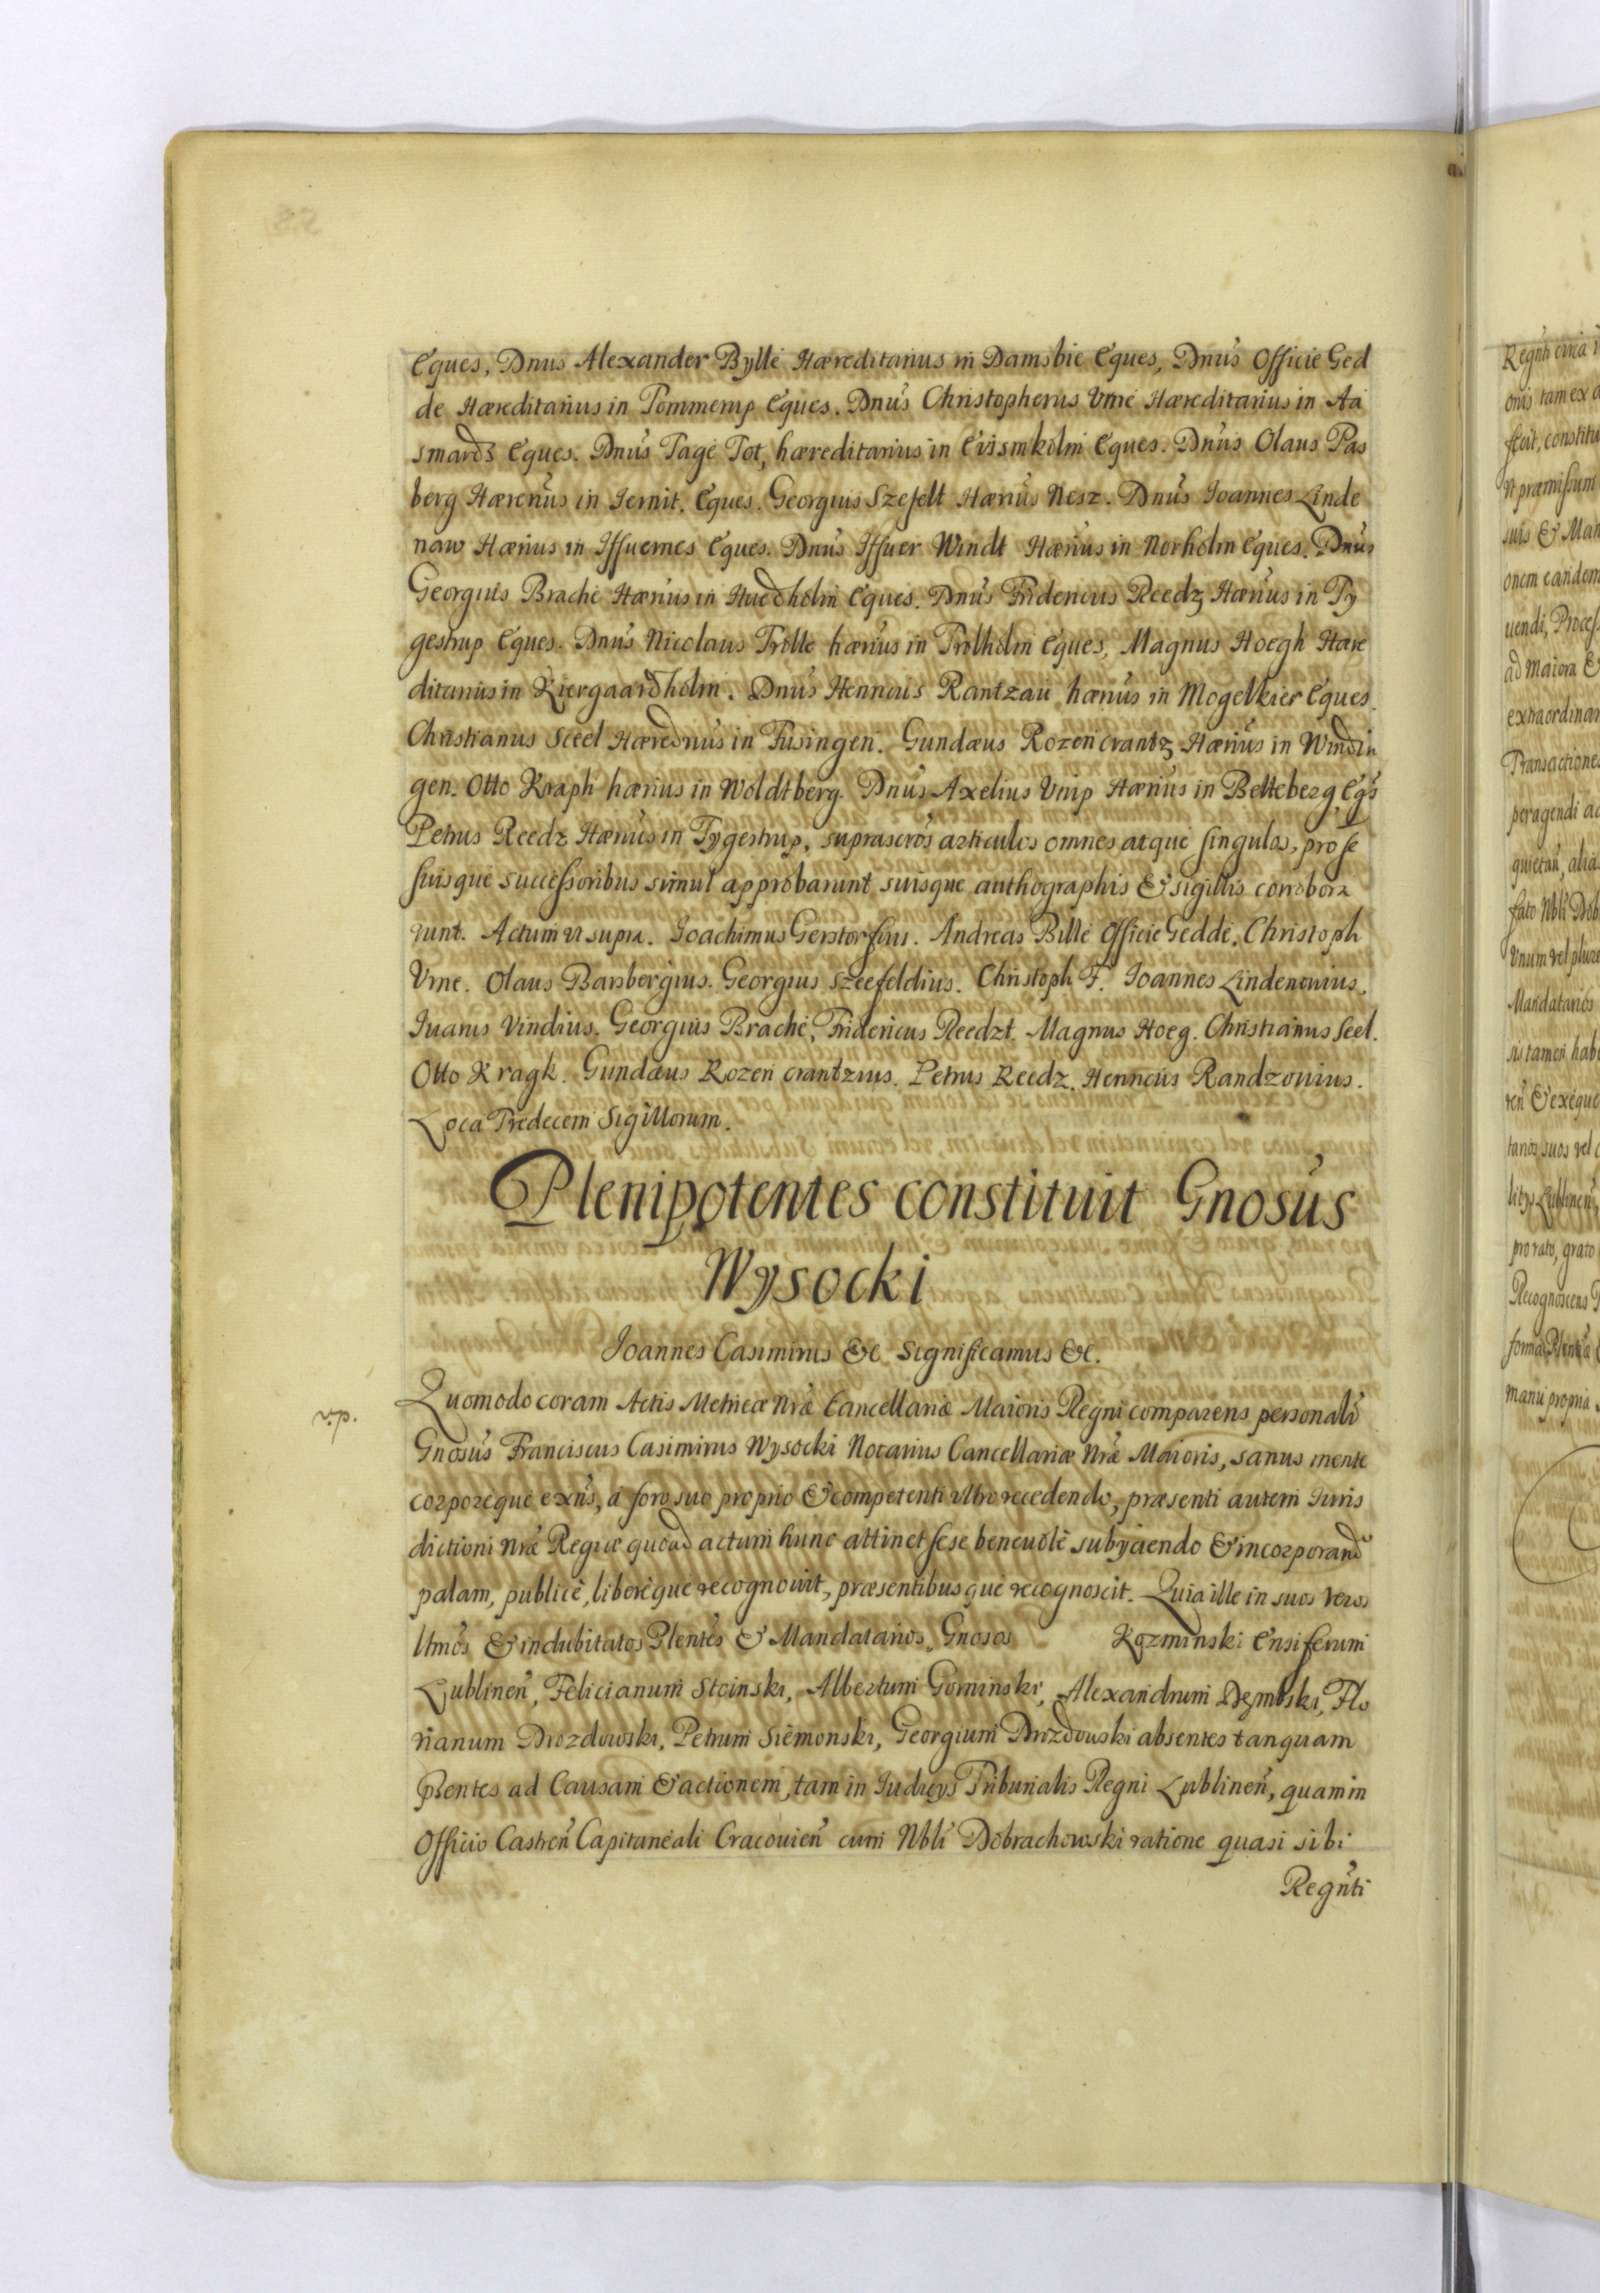 Eques, Dnus Alexander Bylle Hæreditarius in Damsbie Eques, Dnus Officie Ged
de Hæreditarius in Tommerup Eques. Dnus Christopherus Vrne Hæreditarius in Aa
smards Eques. Dnus Tage Tot, hæreditarius in Eiismkolm Eques. Dnus Olaus Pas
berg Hærenus in Iernit. Eques. Georgius Szefelt Hærius Nesz. Dnus Ioannes Linde
naw Hærius in Iffuernes Eques. Dnus Iffuer Windt Hærius in Norholm Eques. Dnus
Georgius Brache Hærius in Huedholm Eques. Dnus Fridericus Reedz Hærius in Ty
gestrup Eques. Dnus Nicolaus Trolle hærius in Trolholm Eques, Magnus Hoegh Hære
ditarius in Kiergaardholm. Dnus Henricus Rantzau hærius in Mogelkier Eques.
Christianus Sceel Hæredrius in Fusingen. Gundæus Rozencrantz Hærius in Windin
gen. Otto Kraph hærius in Woldtberg. Dnus Axelius Vrup Hærius in Belteberg, Eqs
Petrus Reedz Hærius in Tygestrup, suprascros articulos omnes atque singulos, pro se
suisque successoribus simul approbarunt suisque authographis & sigillis corrobora
runt. Actum vt supra. Joachimus Gerstorfius. Andreas Bille Officie Gedde. Christoph
Vrne. Olaus Parsbergius. Georgius Szeefeldius. Christoph F. Ioannes Lindenouius.
Iuarus Vindius. Georgius Brache, Fridericus Reedzt. Magnus Hoeg. Christianus Seel.
Otto Kragk. Gundæus Rozen crantzius. Petrus Reedz. Henricus Randzouius.
Loca Tredecem Sigillorum.
Plenipotentes constituit Gnosus
Wysocki
Ioannes Casimirus &c Significamus &c.
v.p.
Quomodo coram Actis Metricæ Nræ Cancellariæ Maioris Regni comparens personalr
Gnosus Franciscus Casimirus Wysocki Notarius Cancellariæ Nræ Maioris, sanus mente
corporeque exns, a foro suo proprio & competenti vltro recedendo, præsenti autem Iuris
dictioni Nræ Regiæ quoad actum hunc attinet sese beneuole subijciendo & incorporand
palam, publice, libereque recognouit, præsentibusque recognoscit. Quia ille in suos veros
ltmos & indubitatos Plentes & Mandatarios, Gnosos Kozminski Ensiferum
Lublinen, Felicianum Stoinski, Albertum Gominski, Alexandrum Dembski, Flo
rianum Drozdowski, Petrum Siemonski, Georgium Drozdouski absentes tanquam
pntes ad Causam & actionem, tam in Iudicijs Tribunalis Regni Lublinen, quam in
Officio Castren Capitaneali Cracouien cum Nbli Dobrachowski ratione quasi sibi
Regnti